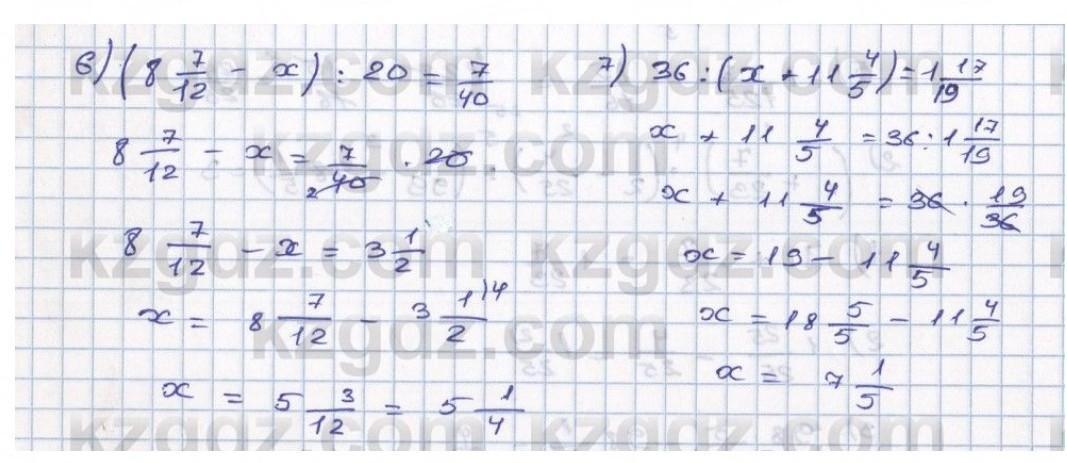 6) (8 7/12 - x) : 20 = 7/40
8 7/12 - x = 7/40 · 20
2
8 7/12 - x = 3 1/2
x = 8 7/12 - 3 1/2 )4
x = 5 3/12 = 5 1/4
7) 36 : (x + 11 4/5) = 1 17/19
x + 11 4/5 = 36 : 1 17/19
x + 11 4/5 = 36 · 19/36
x = 19 - 11 4/5
x = 18 5/5 - 11 4/5
x = 7 1/5
kzgdz.com kzgdz.com
kzgdz.com
kzgdz.com kzgdz.com
kzgdz.com
kzgdz.com kzgdz.com